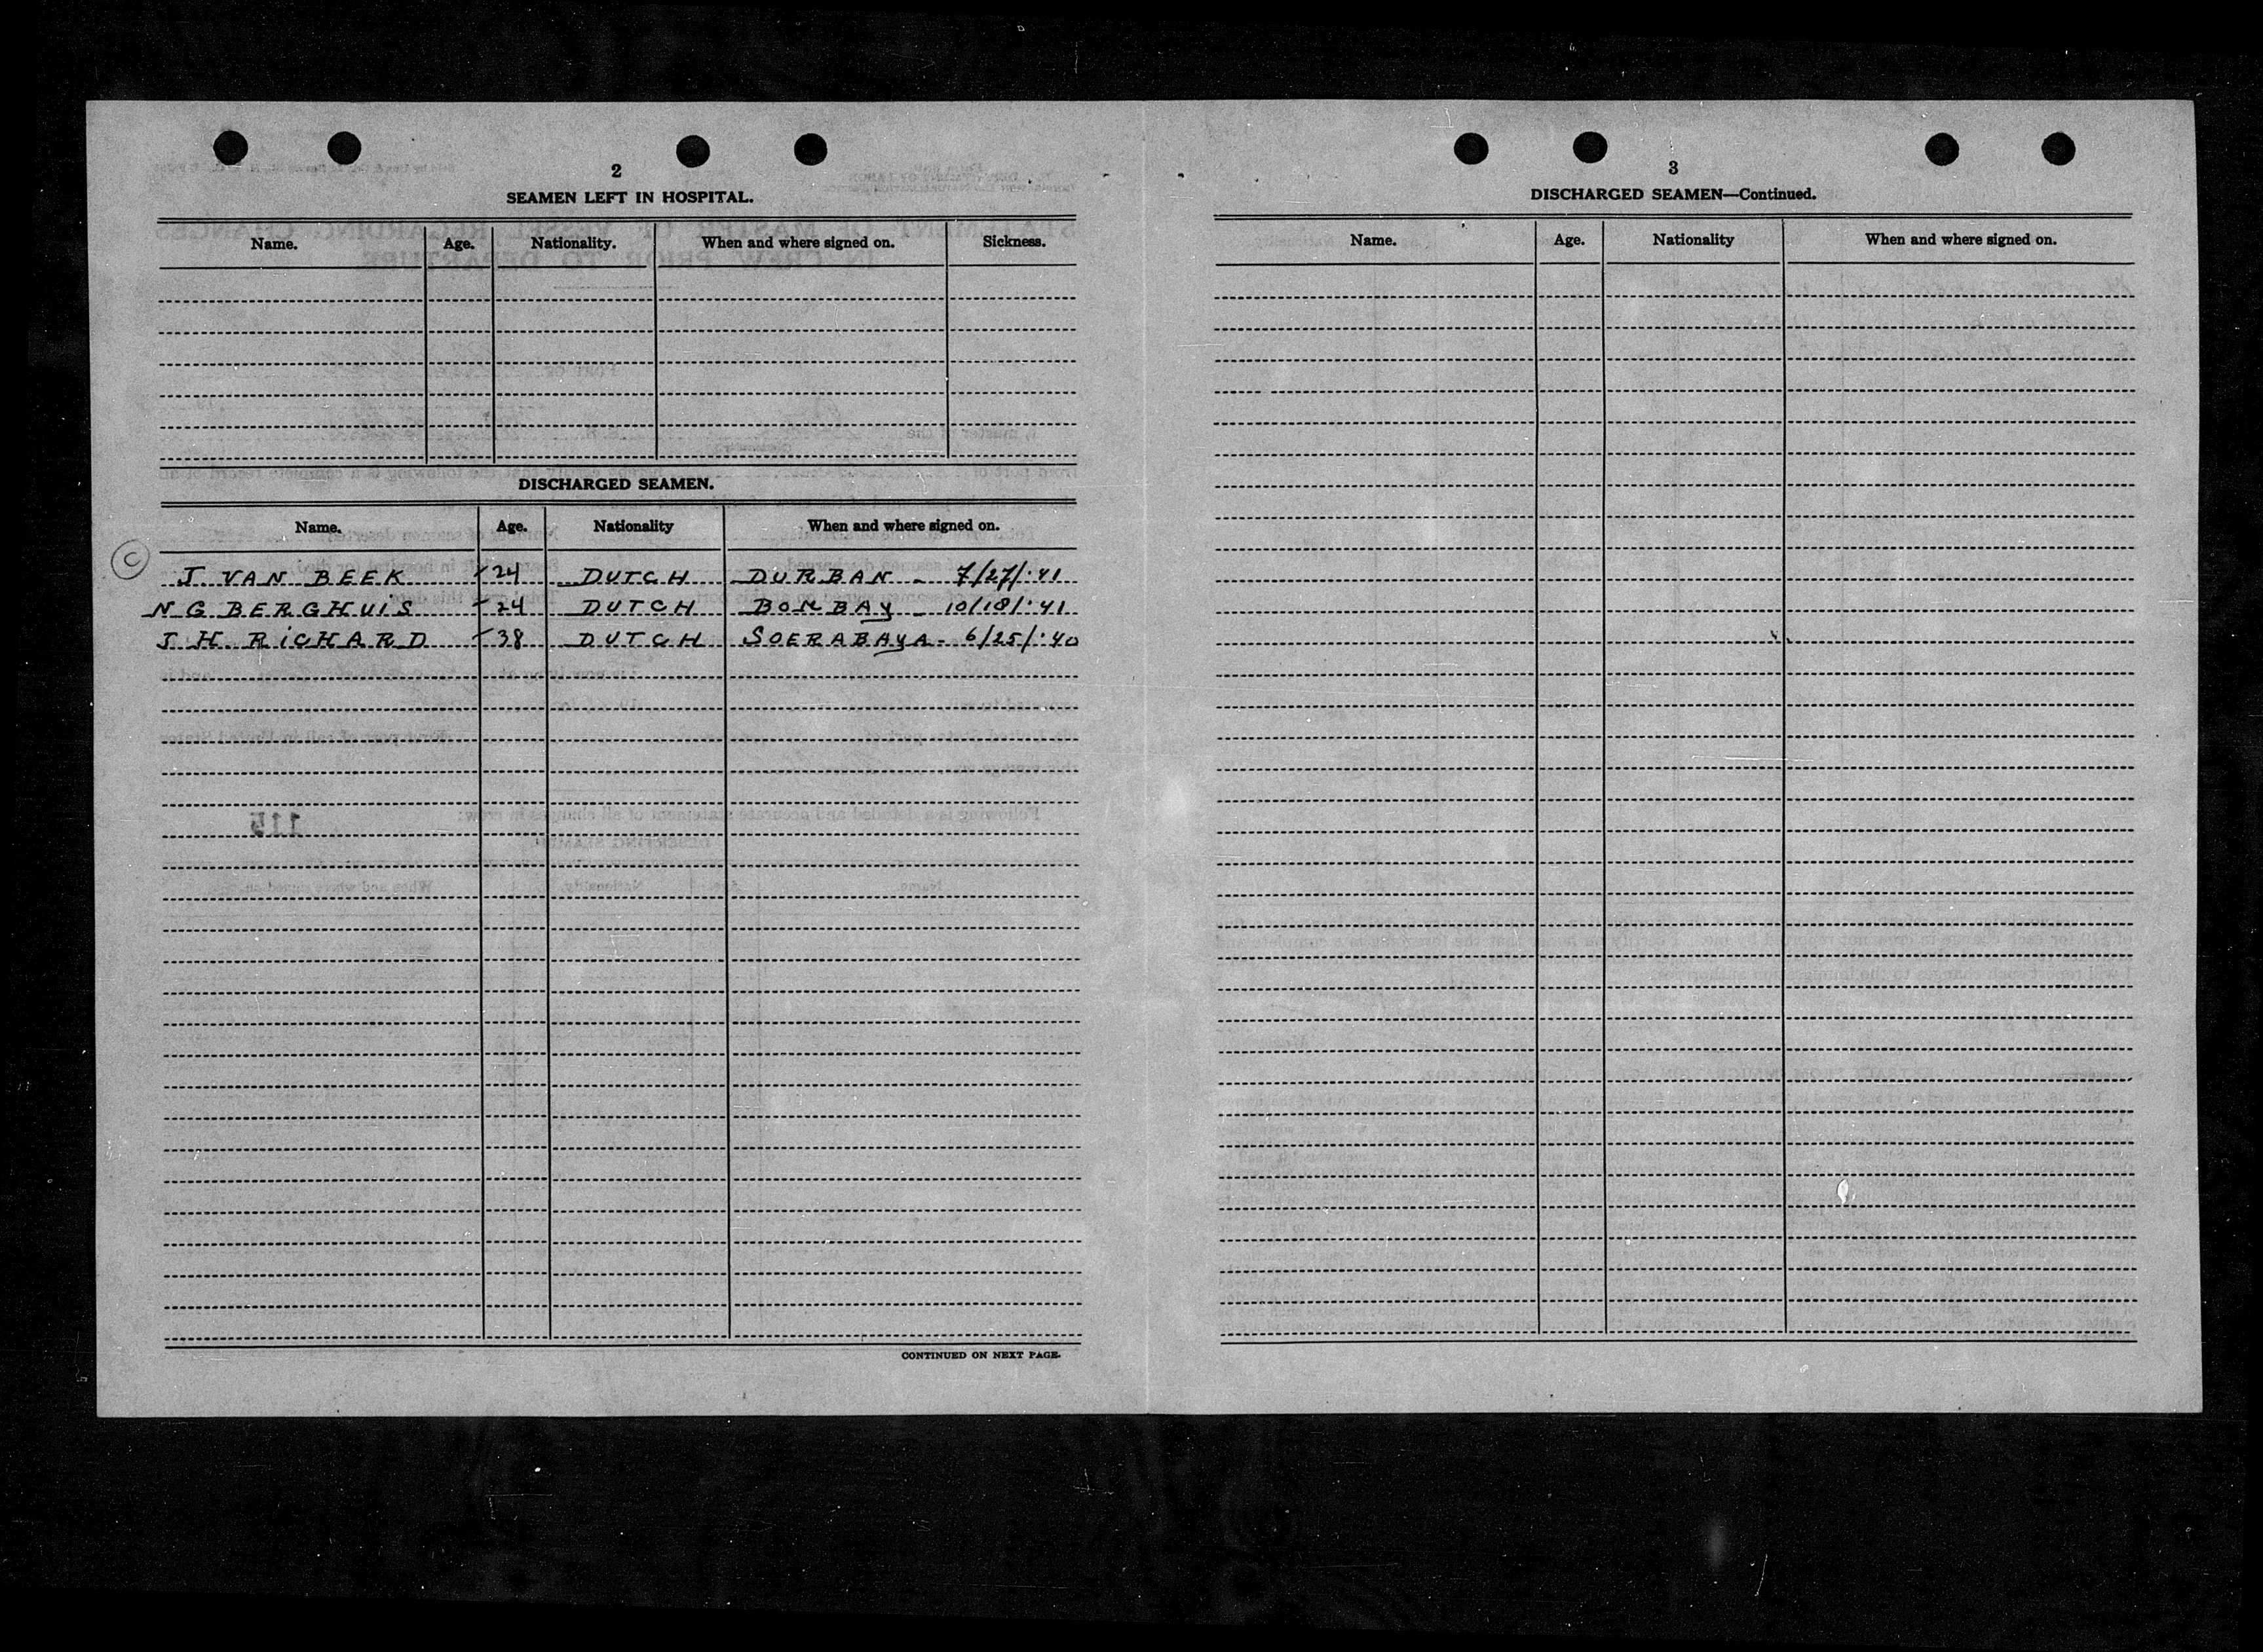 2
SEAMEN LEFT IN HOSPITAL.
Name. Age. Nationality. When and where signed on. Sickness.
DISCHARGED SEAMEN.
Name. Age. Nationality When and where signed on.
C
J VAN BEEK 24 DUTCH DURBAN - 7/27/'41
N G BERGHUIS 24 DUTCH BOMBAY - 10/18/'41
J H. RICHARD 38 DUTCH SOERABAYA - 6/25/'40
115
CONTINUED ON NEXT PAGE.
3
DISCHARGED SEAMEN—Continued.
Name. Age. Nationality When and where signed on.